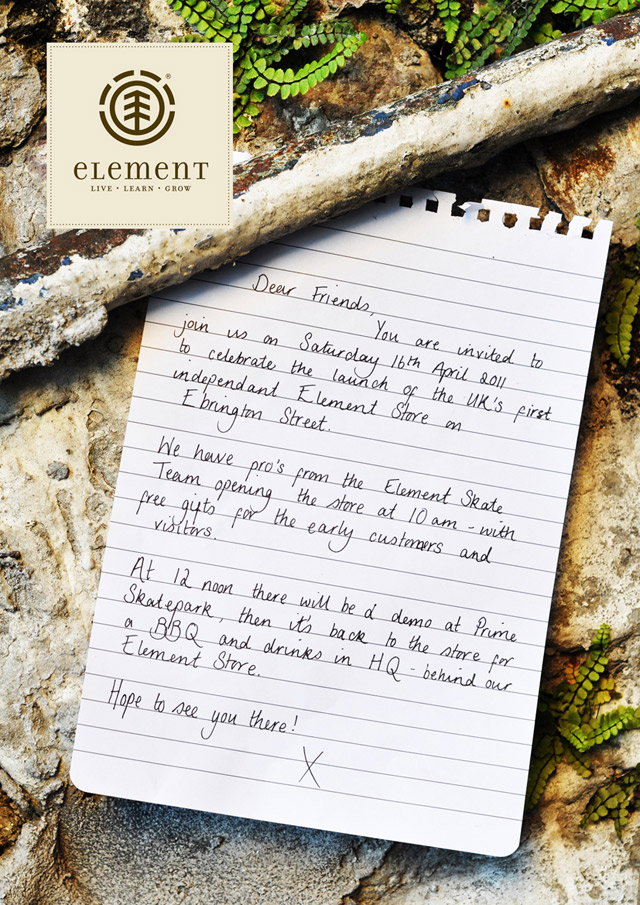 ®
eLEMENT
LIVE • LEARN • GROW
Dear Friends,
You are invited to
join us on Saturday 16th April 2011
to celebrate the launch of the UK's first
independant Element Store on
Ebrington Street.
We have pro's from the Element Skate
Team opening the store at 10am - with
free gifts for the early customers and
visitors.
At 12 noon there will be a demo at Prime
Skatepark, then it's back to the store for
a BBQ and drinks in HQ - behind our
Element Store.
Hope to see you there!
X